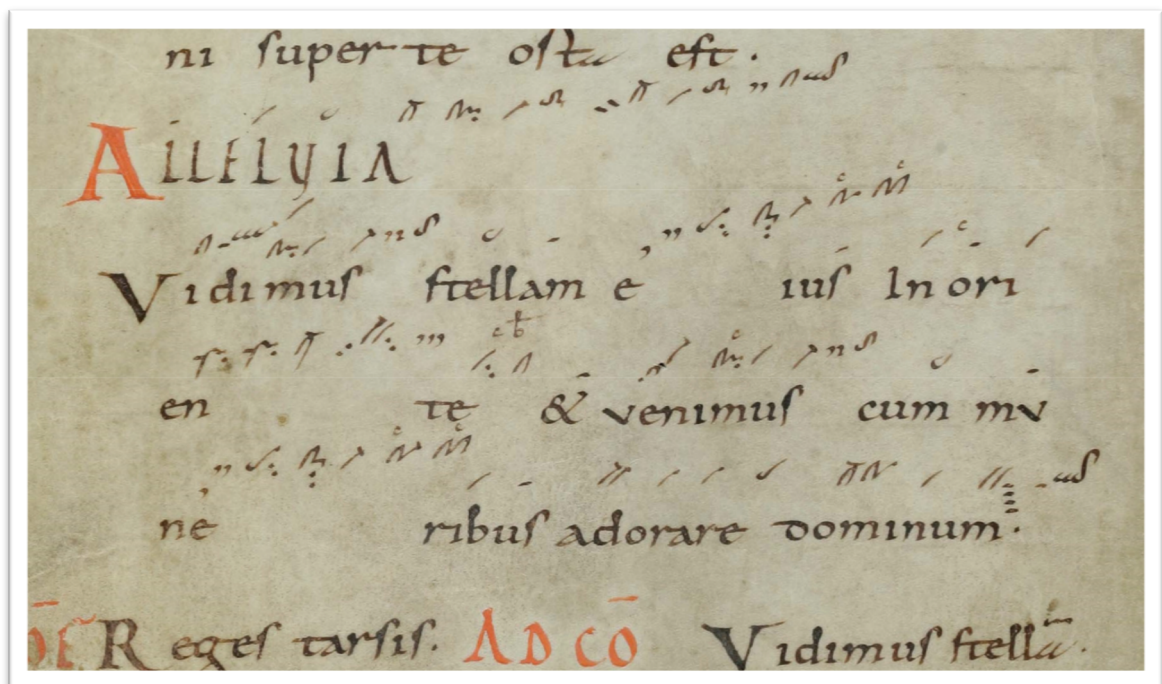 ni super te orta est.
Alleluia
Vidimus stellam e ius In ori
en te & venimus cum mu
ne ribus adorare dominum.
OF Reges tarsis. AD CO Vidimus stellā.